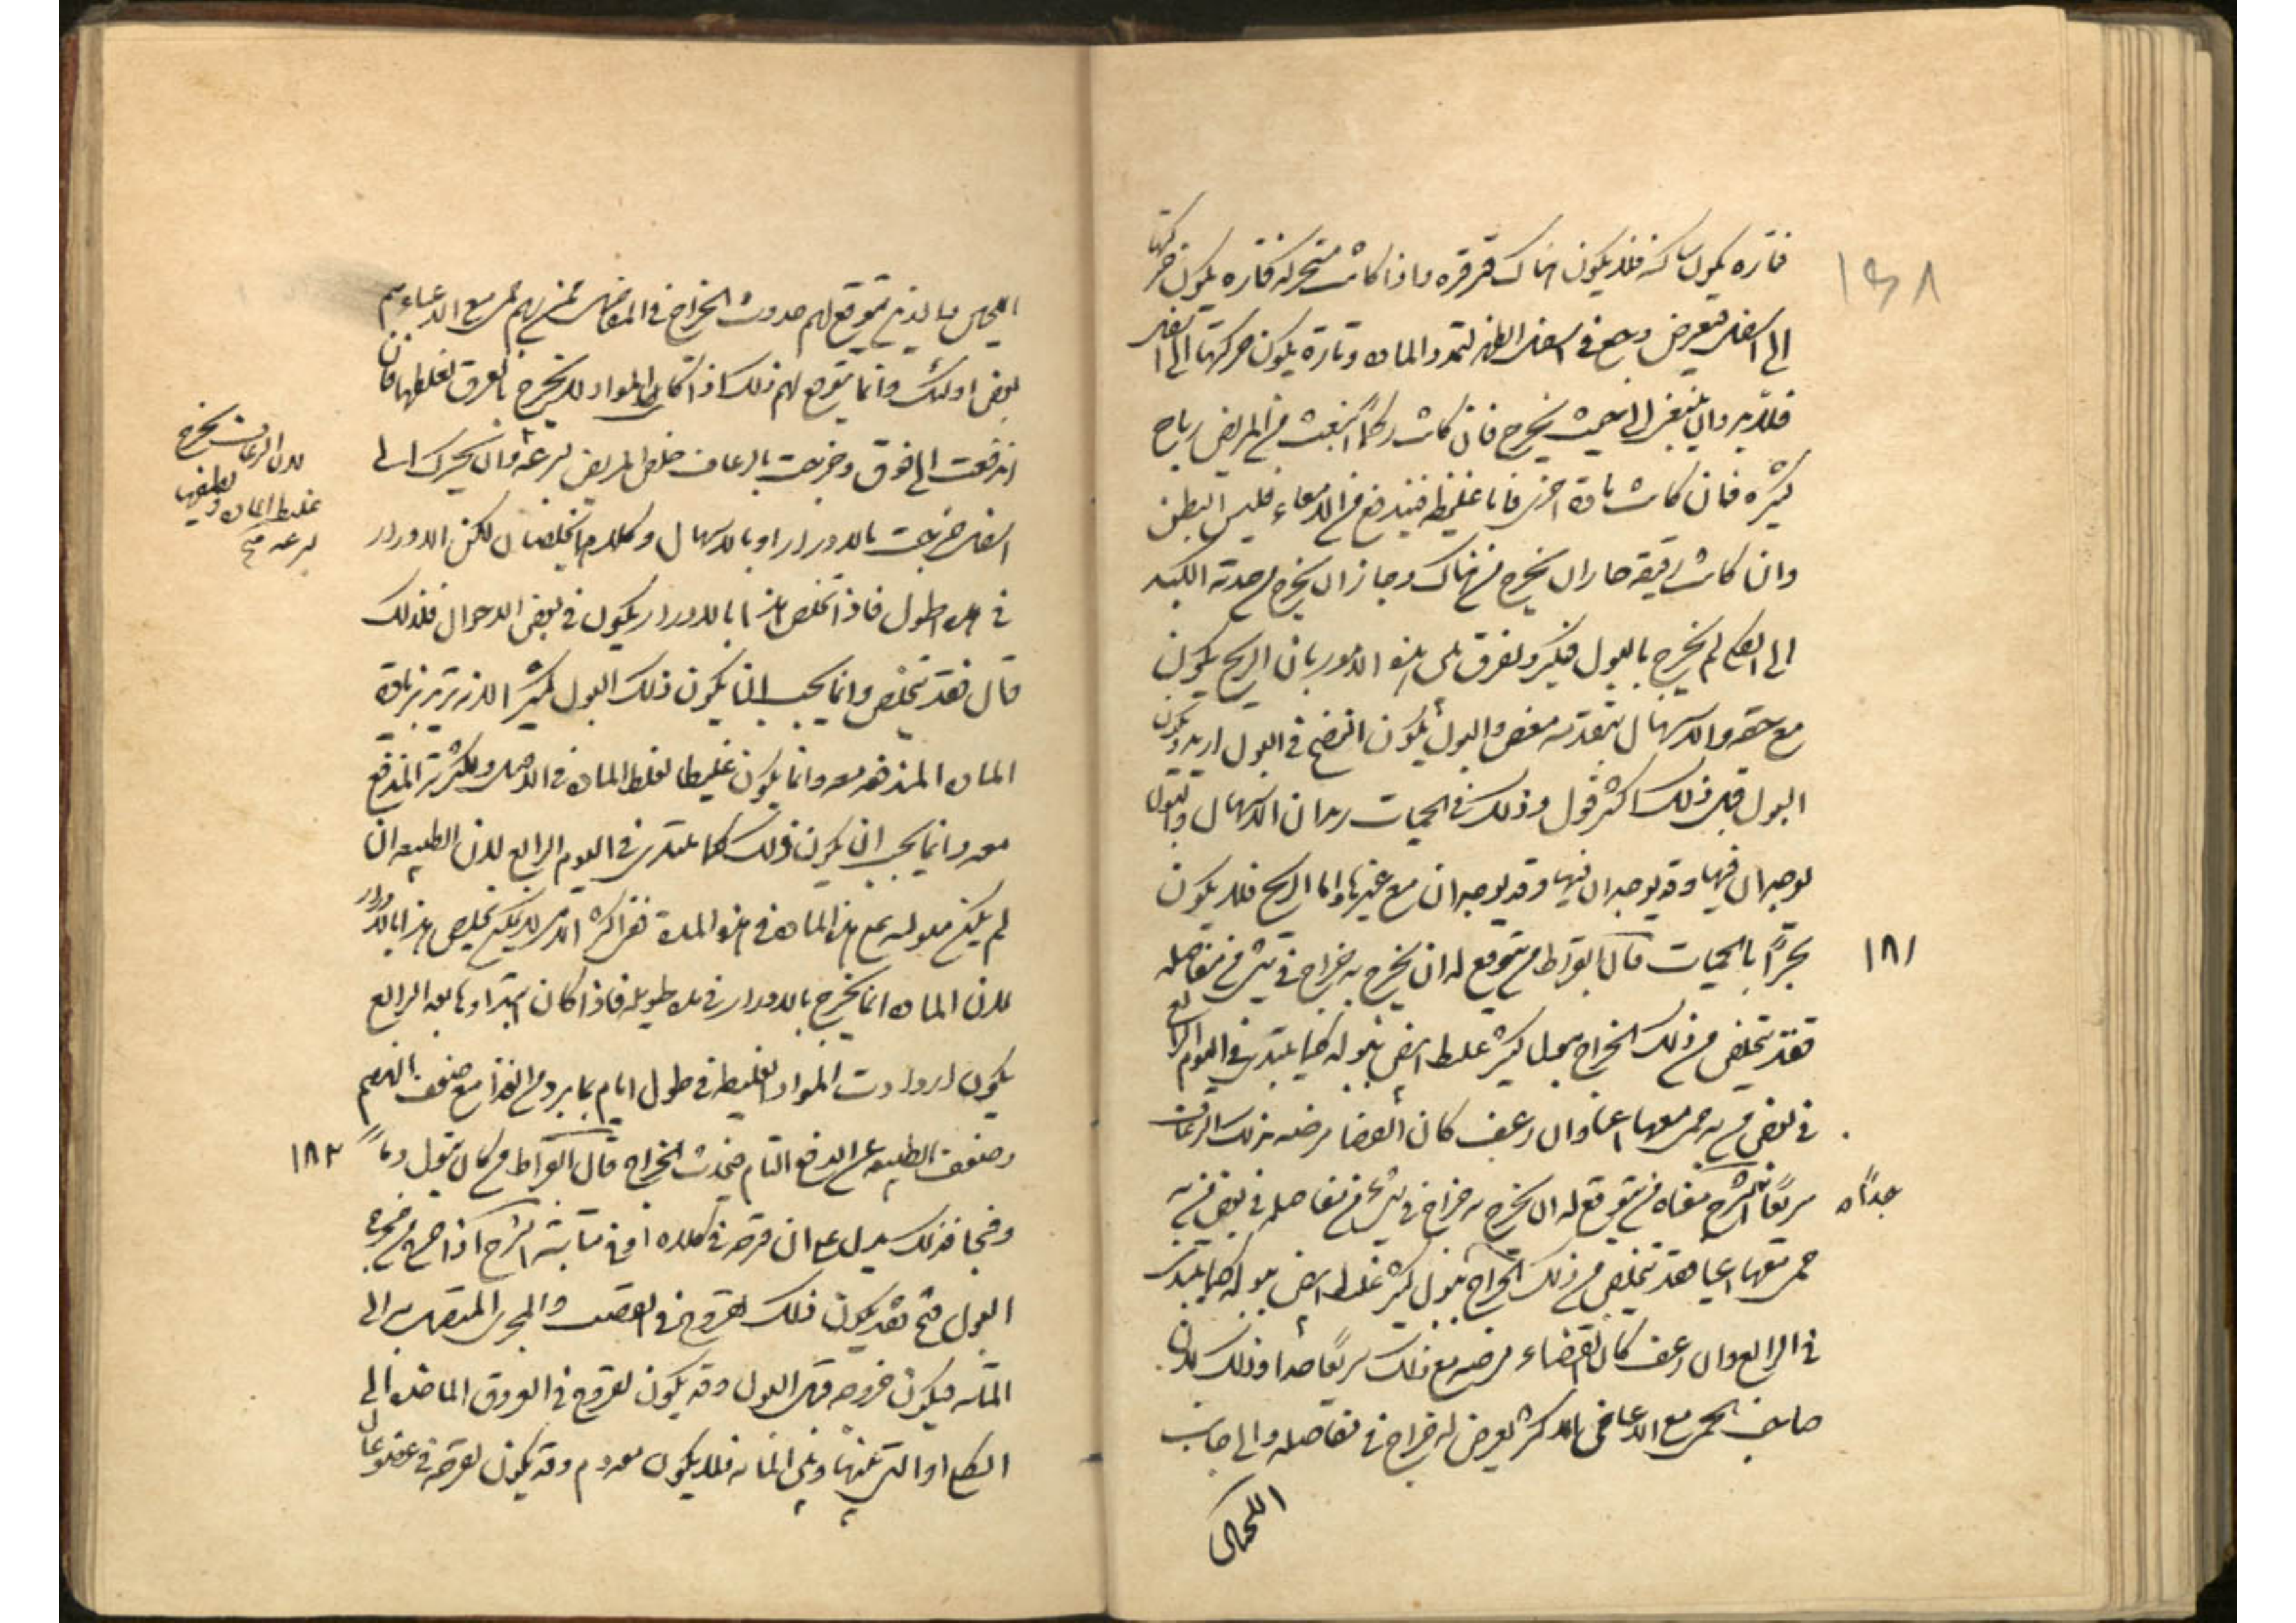 فتارة يكون ساكنه فلا يكون هناك قرقره واذا كانت متحركه فتاره يكون حركتها
الى اسفل فيعرض وجع في اسفل الظهر لتمدد الماده وتارة يكون حركتها الى اسفل
فلا بد وان بحيث يخرج فان كانت ريحا انبعث من المريض رياح
كثيره فان كانت مادة اخرى فاما غليظه فيندفع من الامعاء فليس البطن
وان كانت رقيقه جاز ان يخرج من هناك وجاز ان يخرج من حدبة الكبد
الى الكلى ثم يخرج بالبول فيكثر ونفرق بين هذه الامور بان الريح يكون
مع خفه والاسهال يتقدمه مغص والبول يكون النضج في البول ازيد ويكون
البول قبل ذلك اكثر قول وذلك في الحميات يريد ان الاسهال والبول
يوجدان فيها وقد يوجدان مع غيرها واما الريح فلا يكون
بحرانا بالحميات قال ابقراط من يتوقع له ان يخرج به خراج في شئ من مفاصله
فقد يتخلص من ذلك الخراج ببول كثير غليظ ابيض يبوله كما يبتدئ في اليوم الرابع
في بعض من به حمى معها اعيا وان رعف كان انقضا مرضه بذلك الرعاف
سريعا الشرح معناه من يتوقع له ان يخرج به خراج في شئ من مفاصله في بعض من به
جدا
حمى معها اعيا فقد يتخلص من ذلك الخراج ببول كثير غليظ ابيض يبوله كما يبتدئ
في الرابع وان رعف كان انقضاء مرضه مع ذلك سريعا جدا وذلك لان
صاحب الحمى مع الاعيا في الاكثر يعرض له خراج في مفاصله والى جانب
اللحيين
١٦٨
١٨١
اللحيين فالذين يتوقع لهم حدوث الخراج في المفاصل ممن بهم حمى مع الاعياء هم
بعض اولئك وانما يتوقع لهم ذلك اذا كانت المواد لا تخرج بالعرق لغلظها فان
اندفعت الى فوق وخرجت بالرعاف خلص المريض بسرعه وان تحركت الى
اسفل خرجت بالادرار او بالاسهال وكلاهما يخلصان لكن الادرار
في مده اطول فاذا تخلص هذا بالادرار يكون في بعض الاحوال فلذلك
قال فقد يتخلص وانما يجب ان يكون ذلك البول كثيرا لانه يزيد بزيادة
الماده المندفعه معه وانما يكون غليظا لغلظ الماده في الاصل ولكثرة المندفع
معه وانما يجب ان يكون ذلك كما يبتدئ في اليوم الرابع لان الطبيعه ان
لم يكن معوله بدفع هذا الماده في هذه المدة في اكثر الامر لم يكن تخليص هذا بالادرار
لان الماده انما تخرج بالادرار في مده طويله فاذا كان ابتداوها بعد الرابع
يكون ازدادت المواد الغليظه في طول ايام بما يرد من الغذا مع ضعف الهضم
وضعف الطبيعه عن الدفع التام فيحدث الخراج قال ابقراط من كان يبول دما
وقيحا فذلك يدل على ان قرحه في كلاه او في مثانته الشرح اذا خرج من مجرى
البول قيح فقد يكون ذلك لقروح في القضيب والمجرى المتصل به الى
المثانه فيكون خروجه قبل البول وقد يكون لقروح في العروق الماضيه الى
الكلى او التي بينها وبين المثانه فلا يكون معه دم وقد يكون لقرحه في عضو عال
١٨٢
لان الرعاف يخرج
غليظ الماده ولطيفها
بسرعه صح